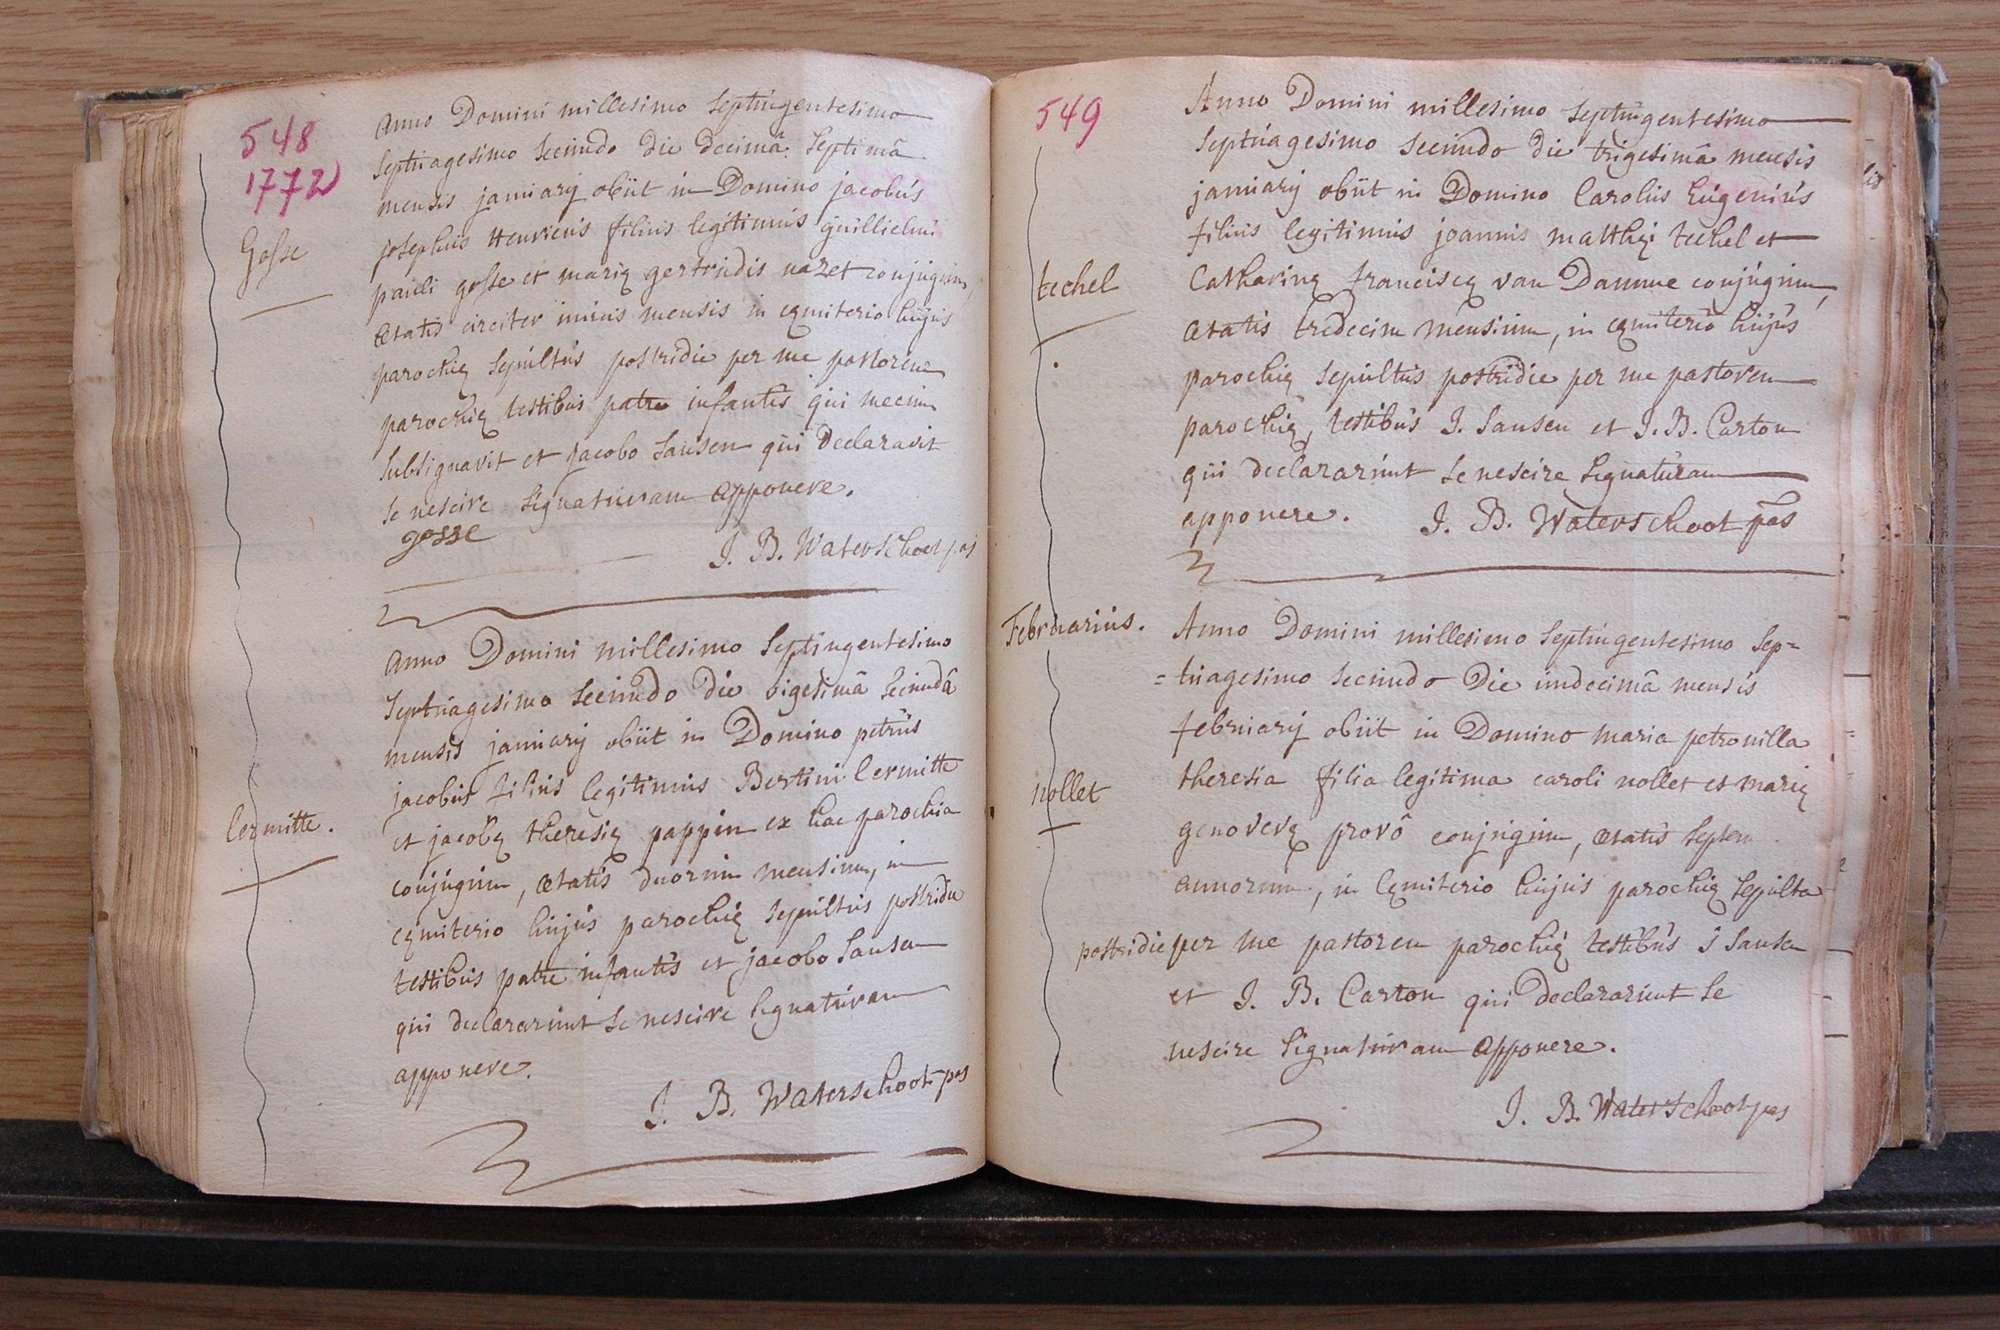 548
1772
Gosse
Anno Domini millesimo Septingentesimo
Septuagesimo Secundo die decimâ Septimâ
mensis januarij obiit in Domino jacobus
josephus Henricus filius legitimus guillielmi
pauli gosse et marię gertrudis nazet conjugum,
ætatis circiter unius mensis in cęmiterio hujus
parochię sepultus postridie per me pastorem
parochię testibus patre infantis qui mecum
subsignavit et jacobo Sansen qui Declaravit
se nescire Signaturam apponere.
gosse
J. B. Waterschoot pas
lermitte.
Anno Domini millesimo Septingentesimo
Septuagesimo Secundo die vigesimâ Secundâ
mensis januarij obiit in Domino petrus
jacobus filius legitimus Bertini lermitte
et jacobę theresię pappin ex hac parochia
conjugum, ætatis duorum mensium, in
cęmiterio hujus parochię sepultus postridie
testibus patre infantis et jacobo Sansen
qui declararunt se nescire Signaturam
apponere.
J. B. Waterschoot pas
549
techel
Anno Domini millesimo Septingentesimo
Septuagesimo Secundo die trigesimâ mensis
januarij obiit in Domino Carolus Eugenius
filius legitimus joannis matthęi techel et
Catharinę franciscę van Damme conjugum,
ætatis tredecim mensium, in cęmiterio hujus
parochię sepultus postridie per me pastorem
parochię, testibus J. Sansen et J. B. Carton
qui declararunt se nescire Signaturam
apponere. J. B. Waterschoot pas
Februarius.
nollet
Anno Domini millesimo Septingentesimo Sep=
=tuagesimo Secundo Die undecimâ mensis
februarij obiit in Domino maria petronilla
theresia filia legitima caroli nollet et marię
genovevę provô conjugum, ætatis septem
annorum, in Cęmiterio hujus parochię Sepulta
postridie per me pastorem parochię testibus j Sansen
et J. B. Carton qui Declararunt Se
nescire Signaturam apponere.
J. B. Waterschoot pas